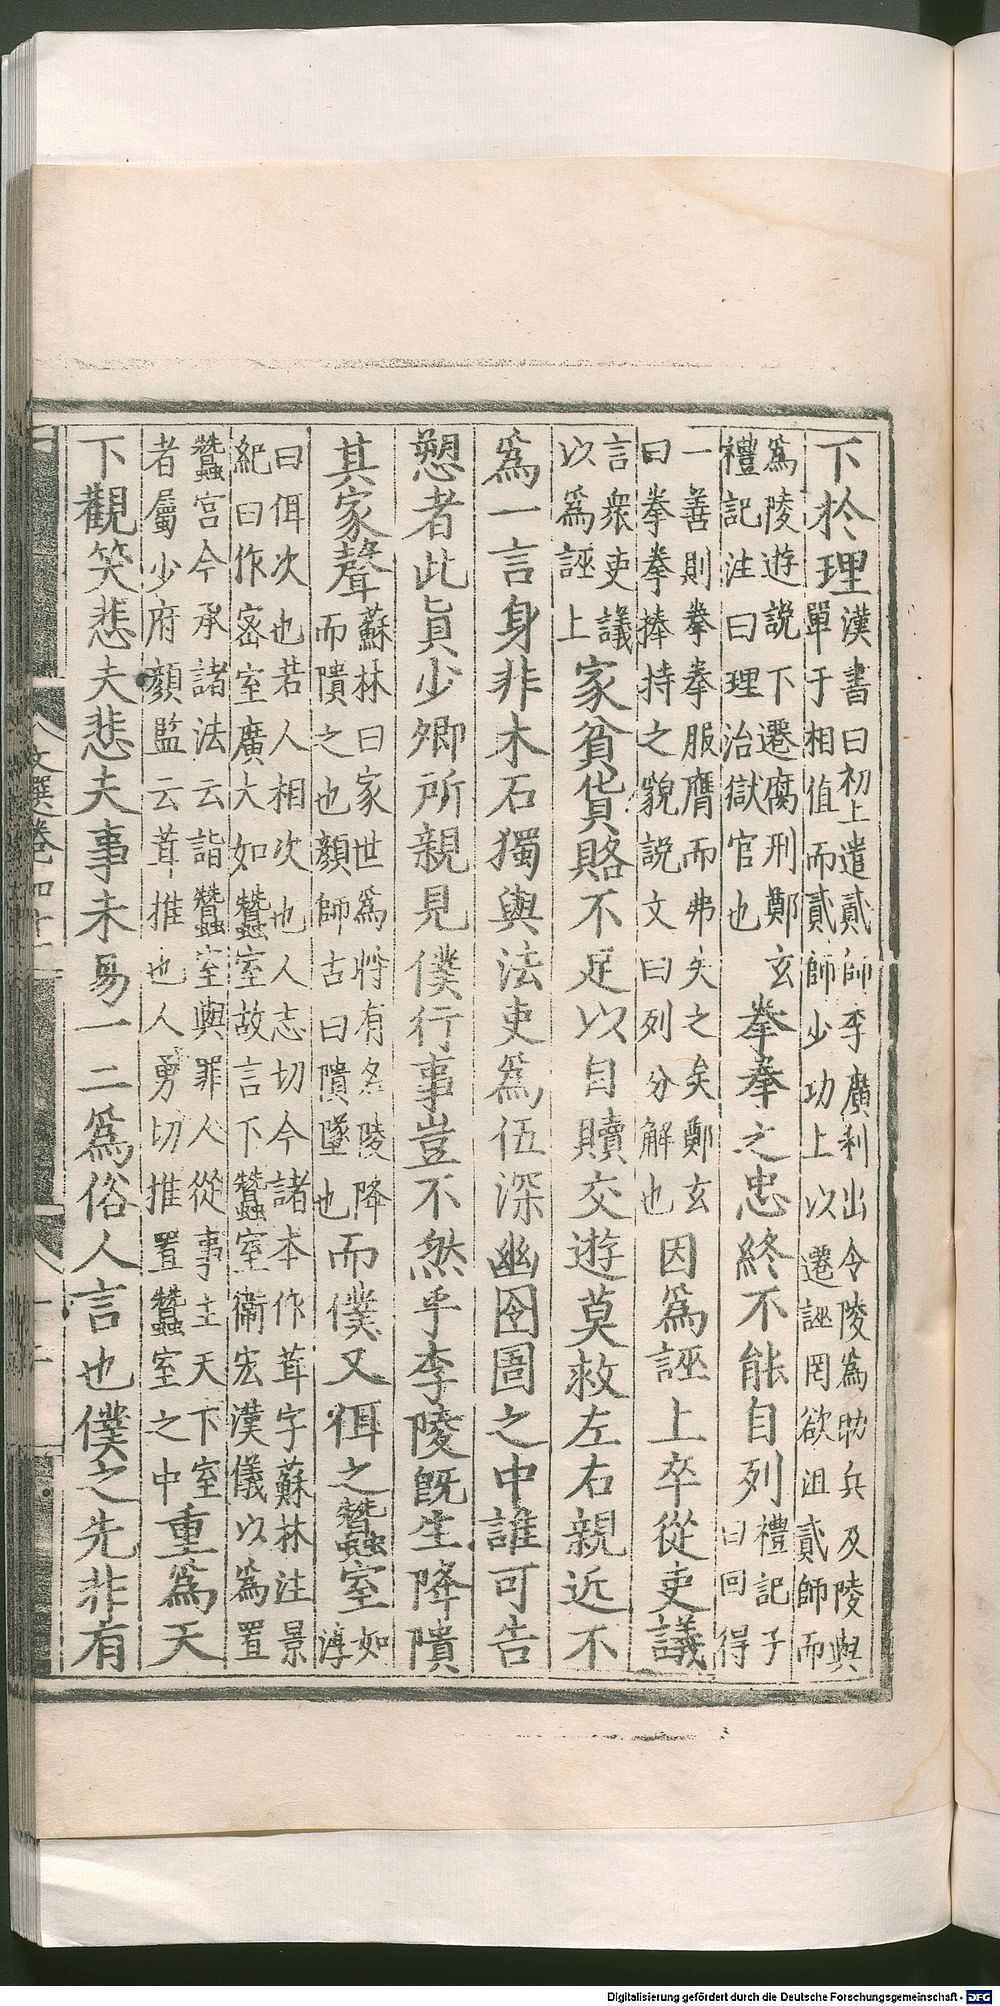 下於理漢書曰初上遣貳師李廣利出令陵爲助兵及陵與單于相值而貳師少功上以遷誣罔欲沮貳師而
爲陵遊說下遷腐刑鄭玄禮記注曰理治獄官也拳拳之忠終不能自列禮記子曰回得
一善則拳拳服膺而弗失之矣鄭玄曰拳拳捧持之貌說文曰列分解也因爲誣上卒從吏議
言衆吏議以爲誣上家貧貨賂不足以自贖交遊莫救左右親近不
爲一言身非木石獨與法吏爲伍深幽囹圄之中誰可告
愬者此眞少卿所親見僕行事豈不然乎李陵旣生降隤
其家聲蘇林曰家世爲將有名陵降而隤之也顏師古曰隤墜也而僕又佴之蠶室如淳
曰佴次也若人相次也人志切今諸本作茸字蘇林注景紀曰作密室廣大如蠶室故言下蠶室衞宏漢儀以爲置
蠶宮今承諸法云詣蠶室與罪人從事主天下室者屬少府顏監云茸推也人勇切推置蠶室之中重爲天
下觀笑悲夫悲夫事未易一二爲俗人言也僕之先非有
文選卷四十一
Digitalisierung gefördert durch die Deutsche Forschungsgemeinschaft - DFG